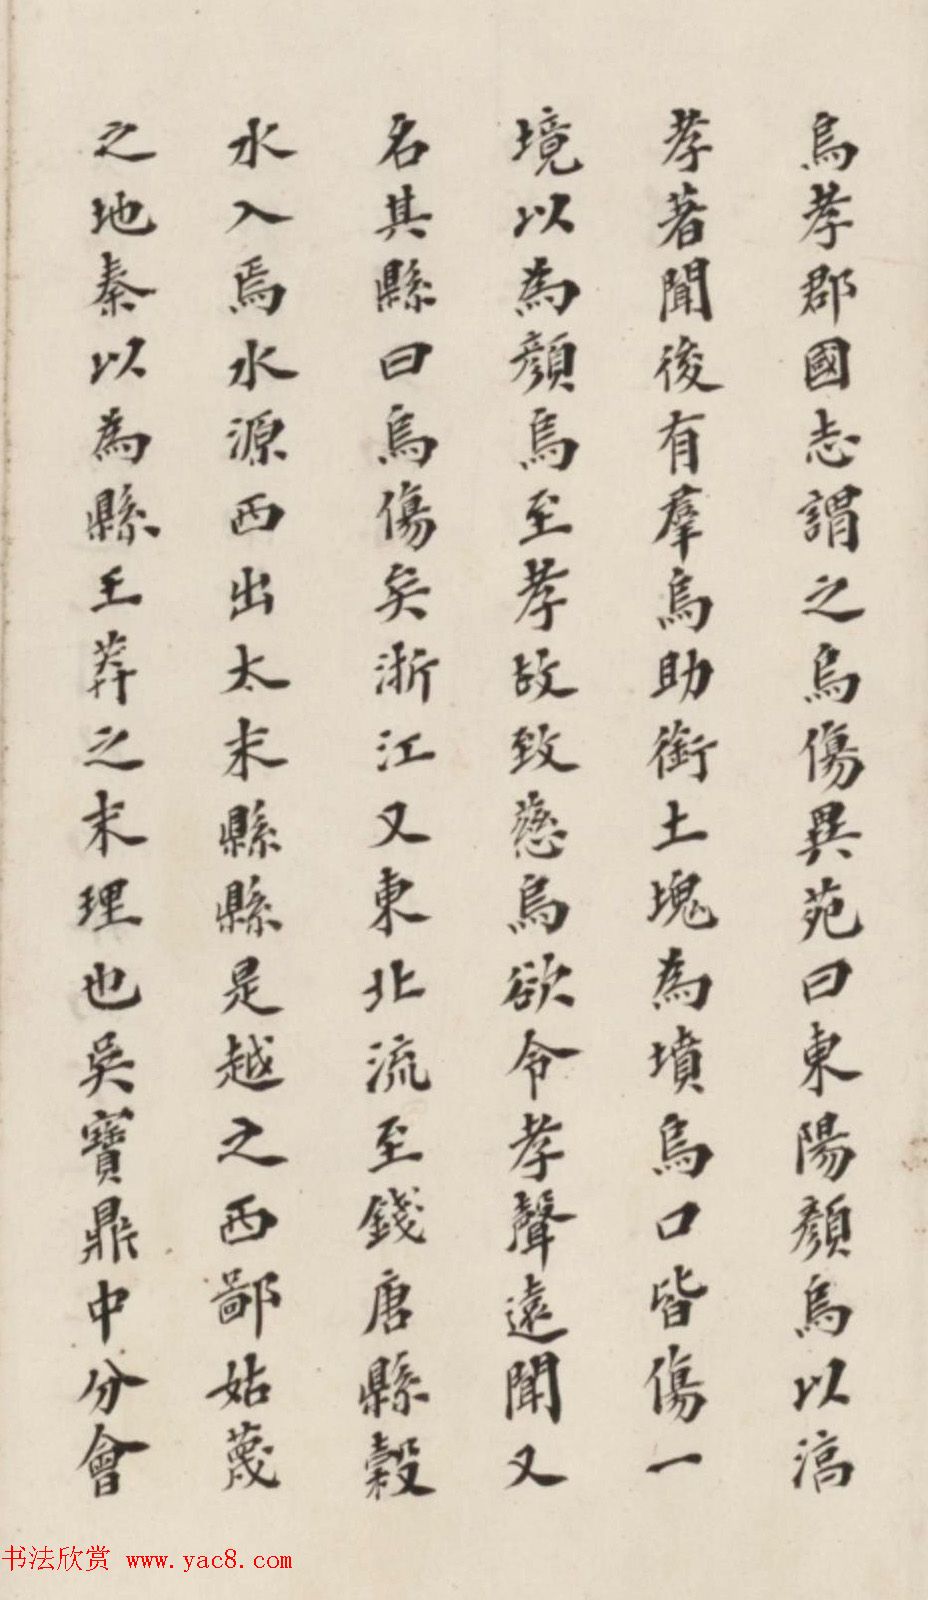 烏孝郡國志謂之烏傷異苑曰東陽顏烏以淳
孝著聞後有羣烏助銜土塊為墳烏口皆傷一
境以為顏烏至孝故致慈烏欲令孝聲遠聞又
名其縣曰烏傷矣浙江又東北流至錢唐縣穀
水入焉水源西出太末縣縣是越之西鄙姑蔑
之地秦以為縣王莽之末理也吳寶鼎中分會
书法欣赏 www.yac8.com